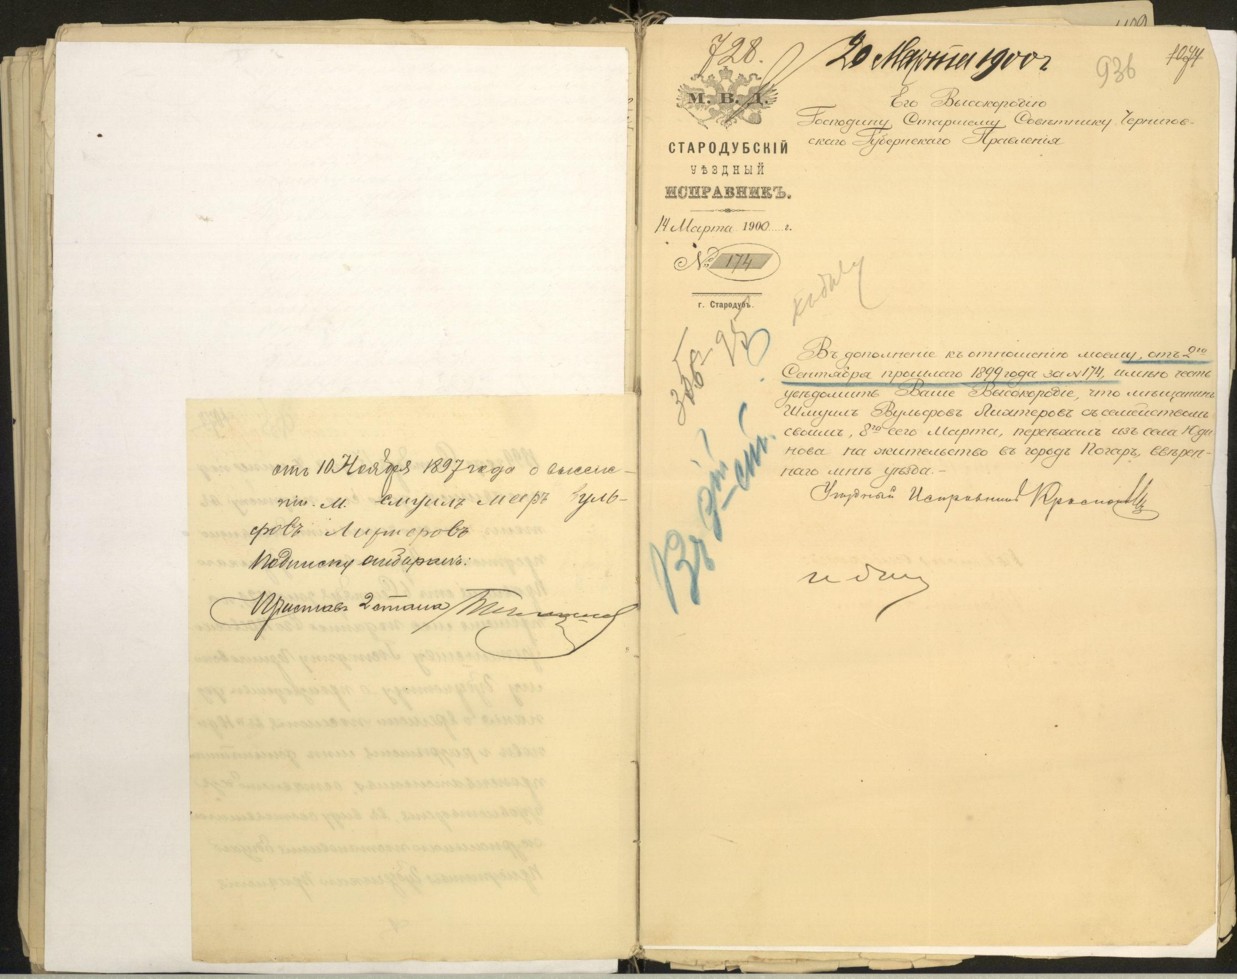 отъ 10 Ноября 1897 года о выселе-
нiи м. Шмуилъ Мееръ Вуль-
фовъ Лихтеровъ
подписку отбиралъ:
Приставъ 2 стана
728.
20 Марта 1900 г
936
1074
М. В. Д.
СТАРОДУБСКІЙ
УѢЗДНЫЙ
ИСПРАВНИКЪ.
14 Марта 1900 г.
№ 174
г. Стародубъ.
Его Высокородію
Господину Старшему Совѣтнику Чернигов-
скаго Губернскаго Правленія
Въ дополненіе къ отношенію моему, отъ 2го
Сентября прошлаго 1899 года за № 174, имѣю честь
увѣдомить Ваше Высокородіе, что мѣщанинъ
Шмуилъ Вульфовъ Лихтеровъ съ семействомъ
своимъ, 8го сего Марта, переѣхалъ изъ села Юди
нова на жительство въ городъ Погаръ, ввѣрен-
наго мнѣ уѣзда.-
Уѣздный Исправникъ